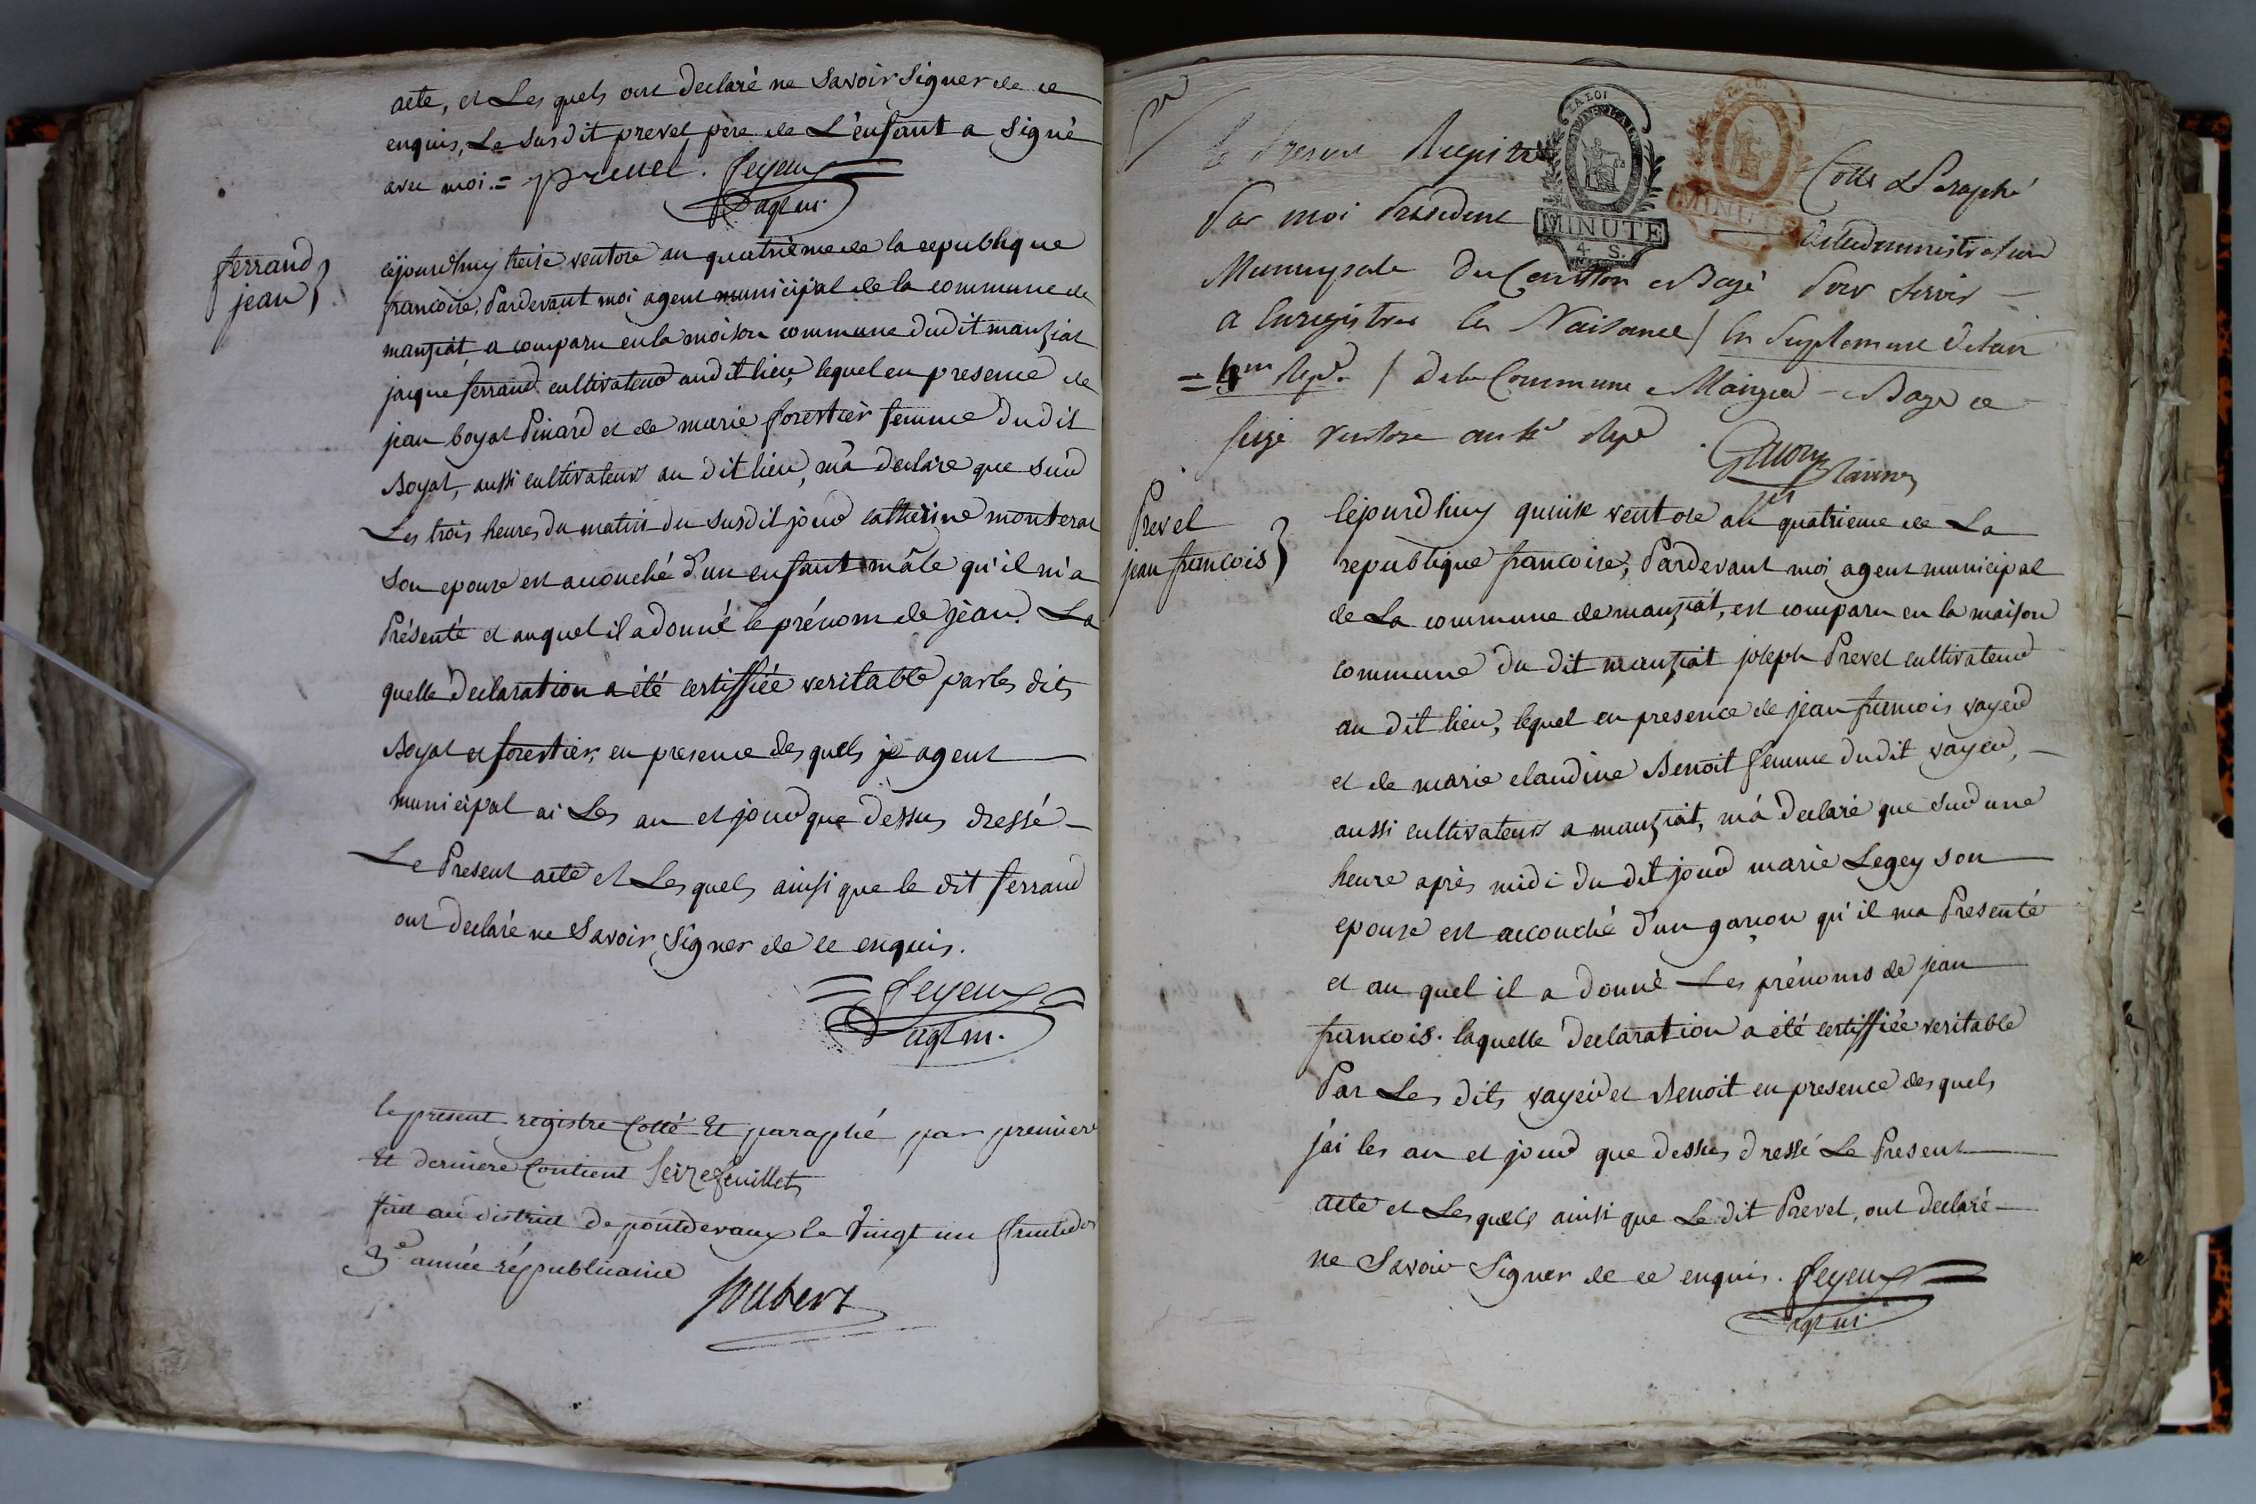 acte, et Les quels ont declaré ne Savoir Signer de ce
enquis, Le Sus dit prevel père de L'enfant a Signé
avec moi. = prevel. feyeux
agt m.
ferrand
jean }
cejourdhuy treise ventose an quatrième de la republique
francoise, Pardevant moi agent municipal de la commune de
manziat, a comparu en la maison commune dudit manziat
jacque ferrand cultivateur audit lieu, lequel en presence de
jean boyat Pinard et de marie forestier femme dudit
Boyat, aussi cultivateurs au dit lieu, m'a declaré que sur
Les trois heures du matin du susdit jour catherine monterat
Son epouse est accouché d'un enfant mâle qu'il m'a
Présenté et auquel il a donné le prénom de jean. La
quelle declaration a été certiffiée veritable par les dits
Boyat et forestier, en presence des quels je agent
municipal ai Les an et jour que dessus dressé
Le Present acte et Les quels ainsi que le dit ferrand
ont declaré ne Savoir Signer de ce enquis.
feyeux
agt m.
le présent registre Cotté Et paraphé par premier
Et derniere Contient Seize feuillets
fait au district de pontdevaux le Vingt un fructidor
3e année républicaine
Joubert
Le Present Registre Cotté et Paraphé
LA LOI
MINUTE
4. S.
MINUTE
Par moi President de l'administration
Municipale Du Canton de Bagé Pour Servir
a Enregistrer les Naissance / En Suplement de l'an
= 4me Repe. / De la Commune de Manziat - Bagé ce
Seize Ventose an 4e Repe.
Prevel
jean francois }
Cejourdhuy quinze ventose an quatrieme de La
republique francoise, Pardevant moi agent municipal
de La commune de manziat, est comparu en la maison
commune du dit manziat joseph Prevel cultivateur
au dit lieu, lequel en presence de jean francois vayeur
et de marie claudine Benoit femme dudit vayeur,
aussi cultivateurs a manziat, m'a declaré que sur une
heure après midi du dit jour marie Legey son
epouse est accouché d'un garcon qu'il ma Presenté
et au quel il a donné Les prénoms de jean
francois. laquelle declaration a été certiffiée veritable
Par Les dits vayeur et Benoit en presence des quels
j'ai les an et jour que dessus dressé Le Present
acte et Les quels ainsi que Le dit Prevel, ont declaré
ne Savoir Signer de ce enquis. feyeux
agt m.